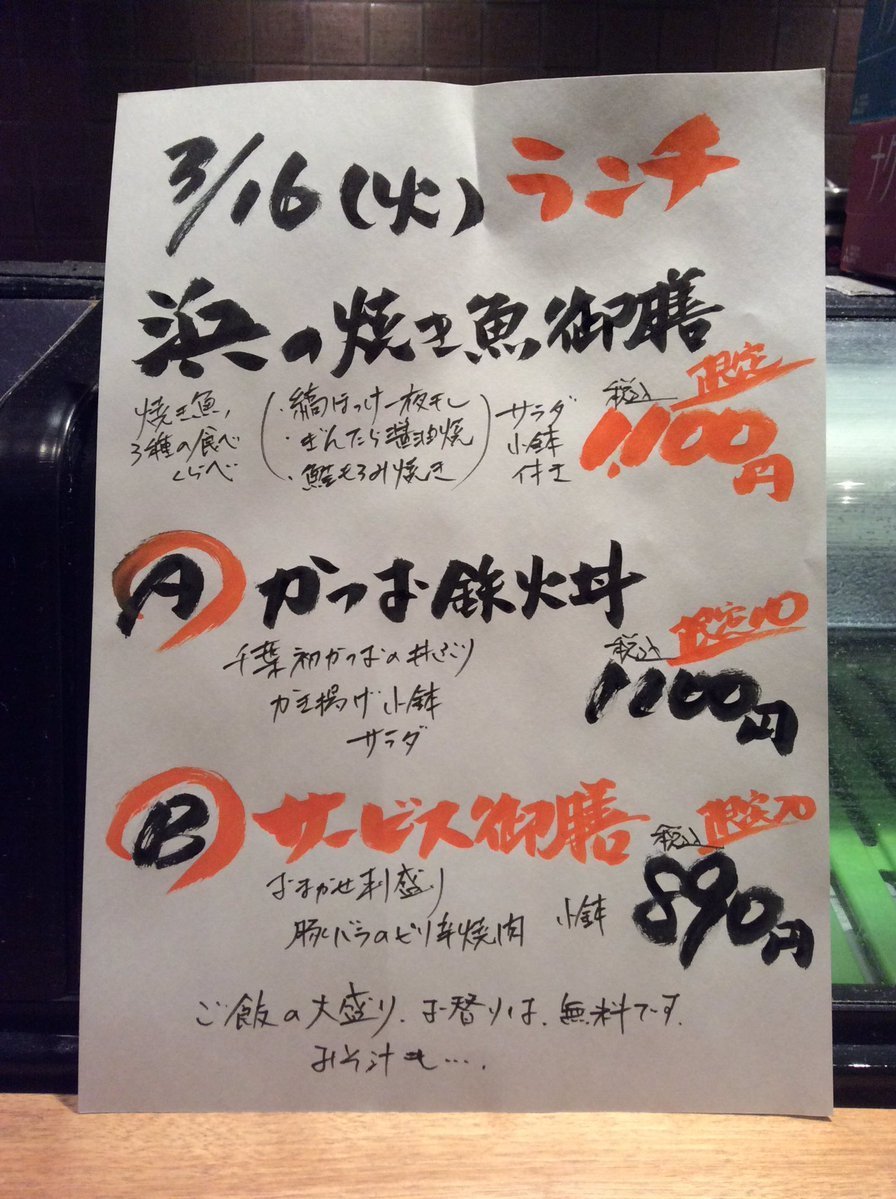 3/16(火) ランチ
浜の焼き魚御膳
限定
税込
1,100円
焼き魚、
3種の食べ
くらべ
・縞ほっけ一夜干し
・ぎんだら醤油焼
・鰆もろみ焼き
サラダ
小鉢
付き
A かつお鉄火丼
限定10
税込
1100円
千葉初かつおの丼ぶり
かき揚げ 小鉢
サラダ
B サービス御膳
限定20
税込
890円
おまかせ刺盛り
豚バラのピリ辛焼肉 小鉢
ご飯の大盛り、お替りは、無料です。
みそ汁も….